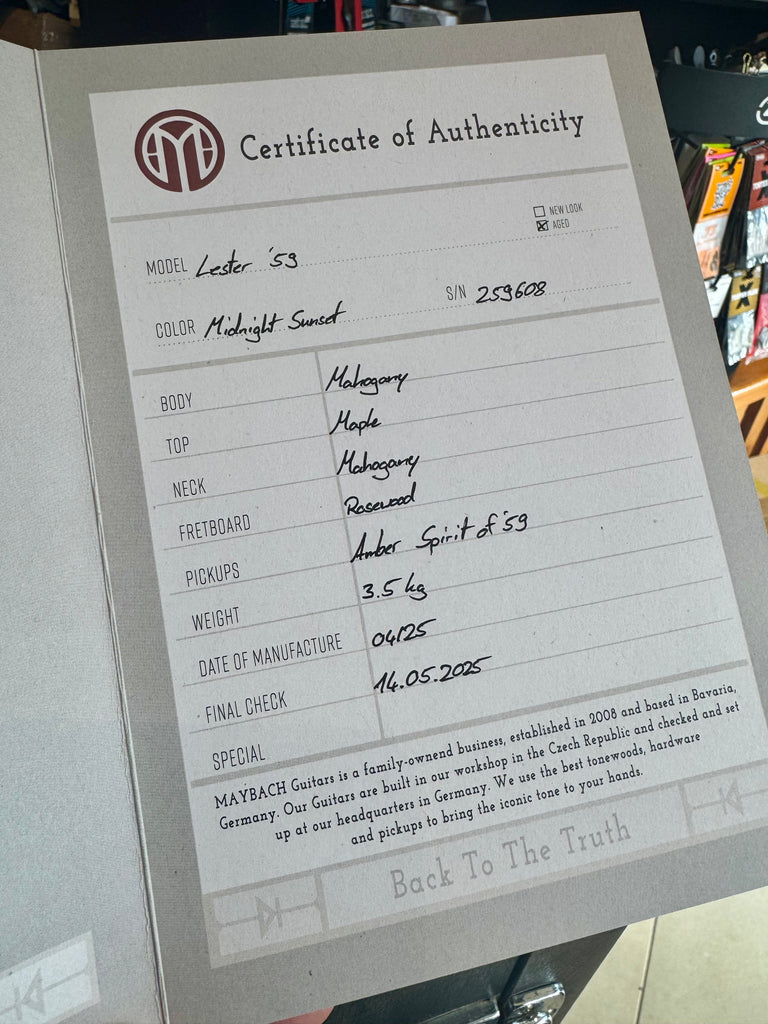 Certificate of Authenticity
NEW LOOK
AGED
MODEL Lester '59
S/N 259608
COLOR Midnight Sunset
BODY Mahogany
TOP Maple
NECK Mahogany
FRETBOARD Rosewood
PICKUPS Amber Spirit of '59
WEIGHT 3.5 kg
DATE OF MANUFACTURE 04/25
FINAL CHECK 14.05.2025
SPECIAL
MAYBACH Guitars is a family-ownend business, established in 2008 and based in Bavaria,
Germany. Our Guitars are built in our workshop in the Czech Republic and checked and set
up at our headquarters in Germany. We use the best tonewoods, hardware
and pickups to bring the iconic tone to your hands.
Back To The Truth